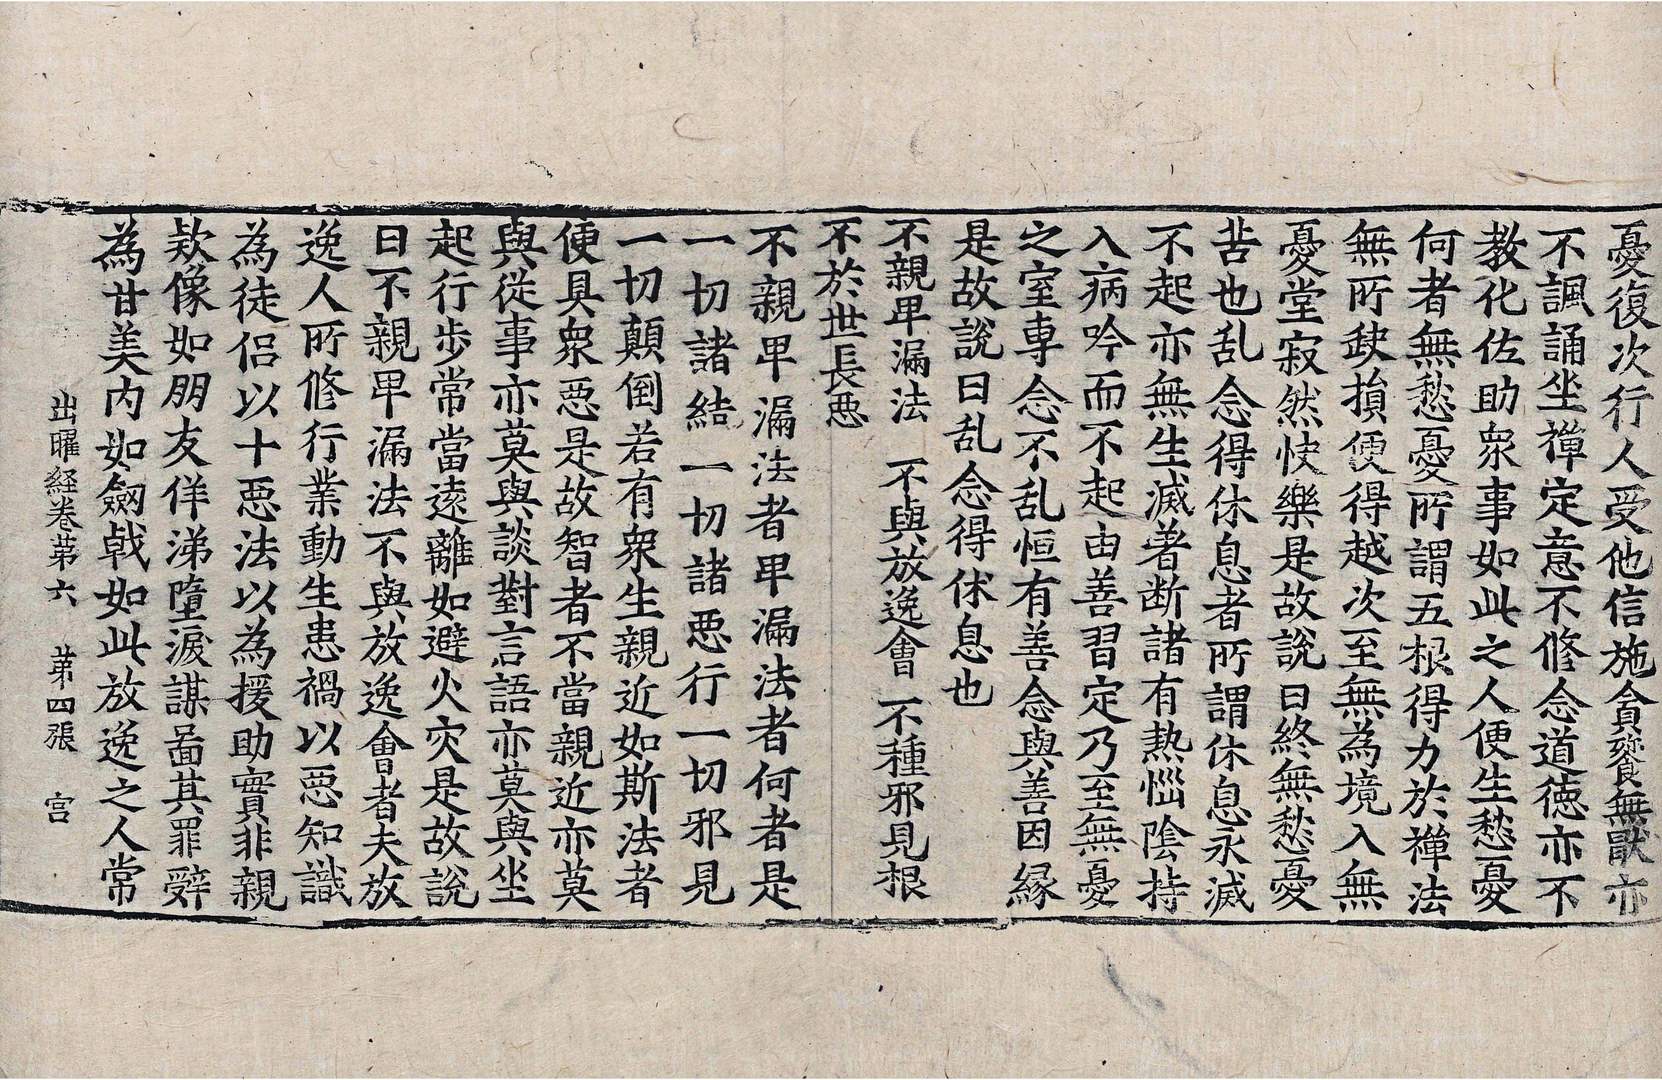 憂復次行人受他信施貪餮無猒亦
不諷誦坐禪定意不修念道徳亦不
教化佐助衆事如此之人便生愁憂
何者無愁憂所謂五根得力於禪法
無所缺損便得越次至無為境入無
憂堂寂然快樂是故說日終無愁憂
苦也乱念得休息者所謂休息永滅
不起亦無生滅著断諸有熱惱陰持
入病吟而不起由善習定乃至無憂
之室專念不乱恒有善念與善因緣
是故說曰乱念得休息也
不親卑漏法　不與放逸會　不種邪見根
不於世長惡
不親卑漏法者卑漏法者何者是
一切諸結一切諸惡行一切邪見
一切顛倒若有衆生親近如斯法者
便具衆惡是故智者不當親近亦莫
與從事亦莫與談對言語亦莫與坐
起行步常當遠離如避火灾是故說
曰不親卑漏法不與放逸會者夫放
逸人所修行業動生患禍以惡知識
為徒侣以十惡法以為援助實非親
欵像如朋友佯涕墮淚謀啚其罪辭
為甘美内如劔戟如此放逸之人常
出曜経卷苐六　苐四張　宫